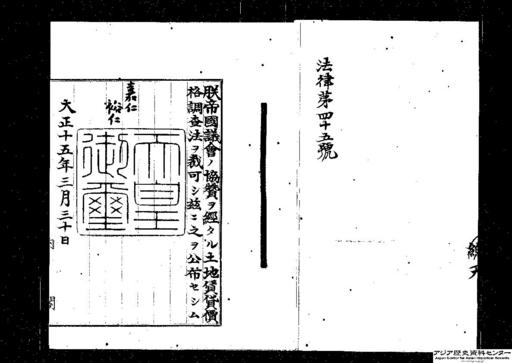 法律第四十五號
朕帝國議會ノ協贊ヲ經タル土地賃貸價
格調査法ヲ裁可シ茲ニ之ヲ公布セシム
嘉仁
裕仁
天皇
御璽
大正十五年三月三十日
内閣
アジア歴史資料センター
Japan Center for Asian Historical Records